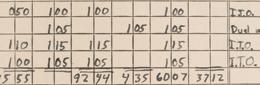 050 100 100 100 I.T.O.
105 105 105 Duel
110 115 115 115 I.T.O.
100 105 105 105 I.T.O.
5 55 92 44 4 35 60 07 37 12